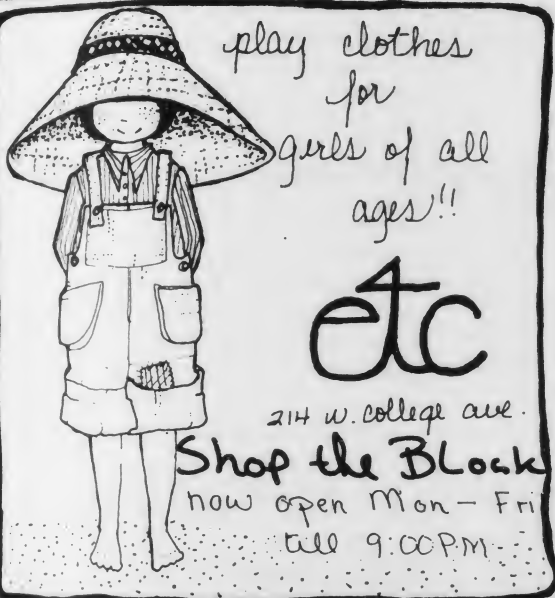 play clothes
for
girls of all
ages!!
etc
214 w. college ave.
Shop the BLock
now open Mon - Fri
till 9:00 P.M.